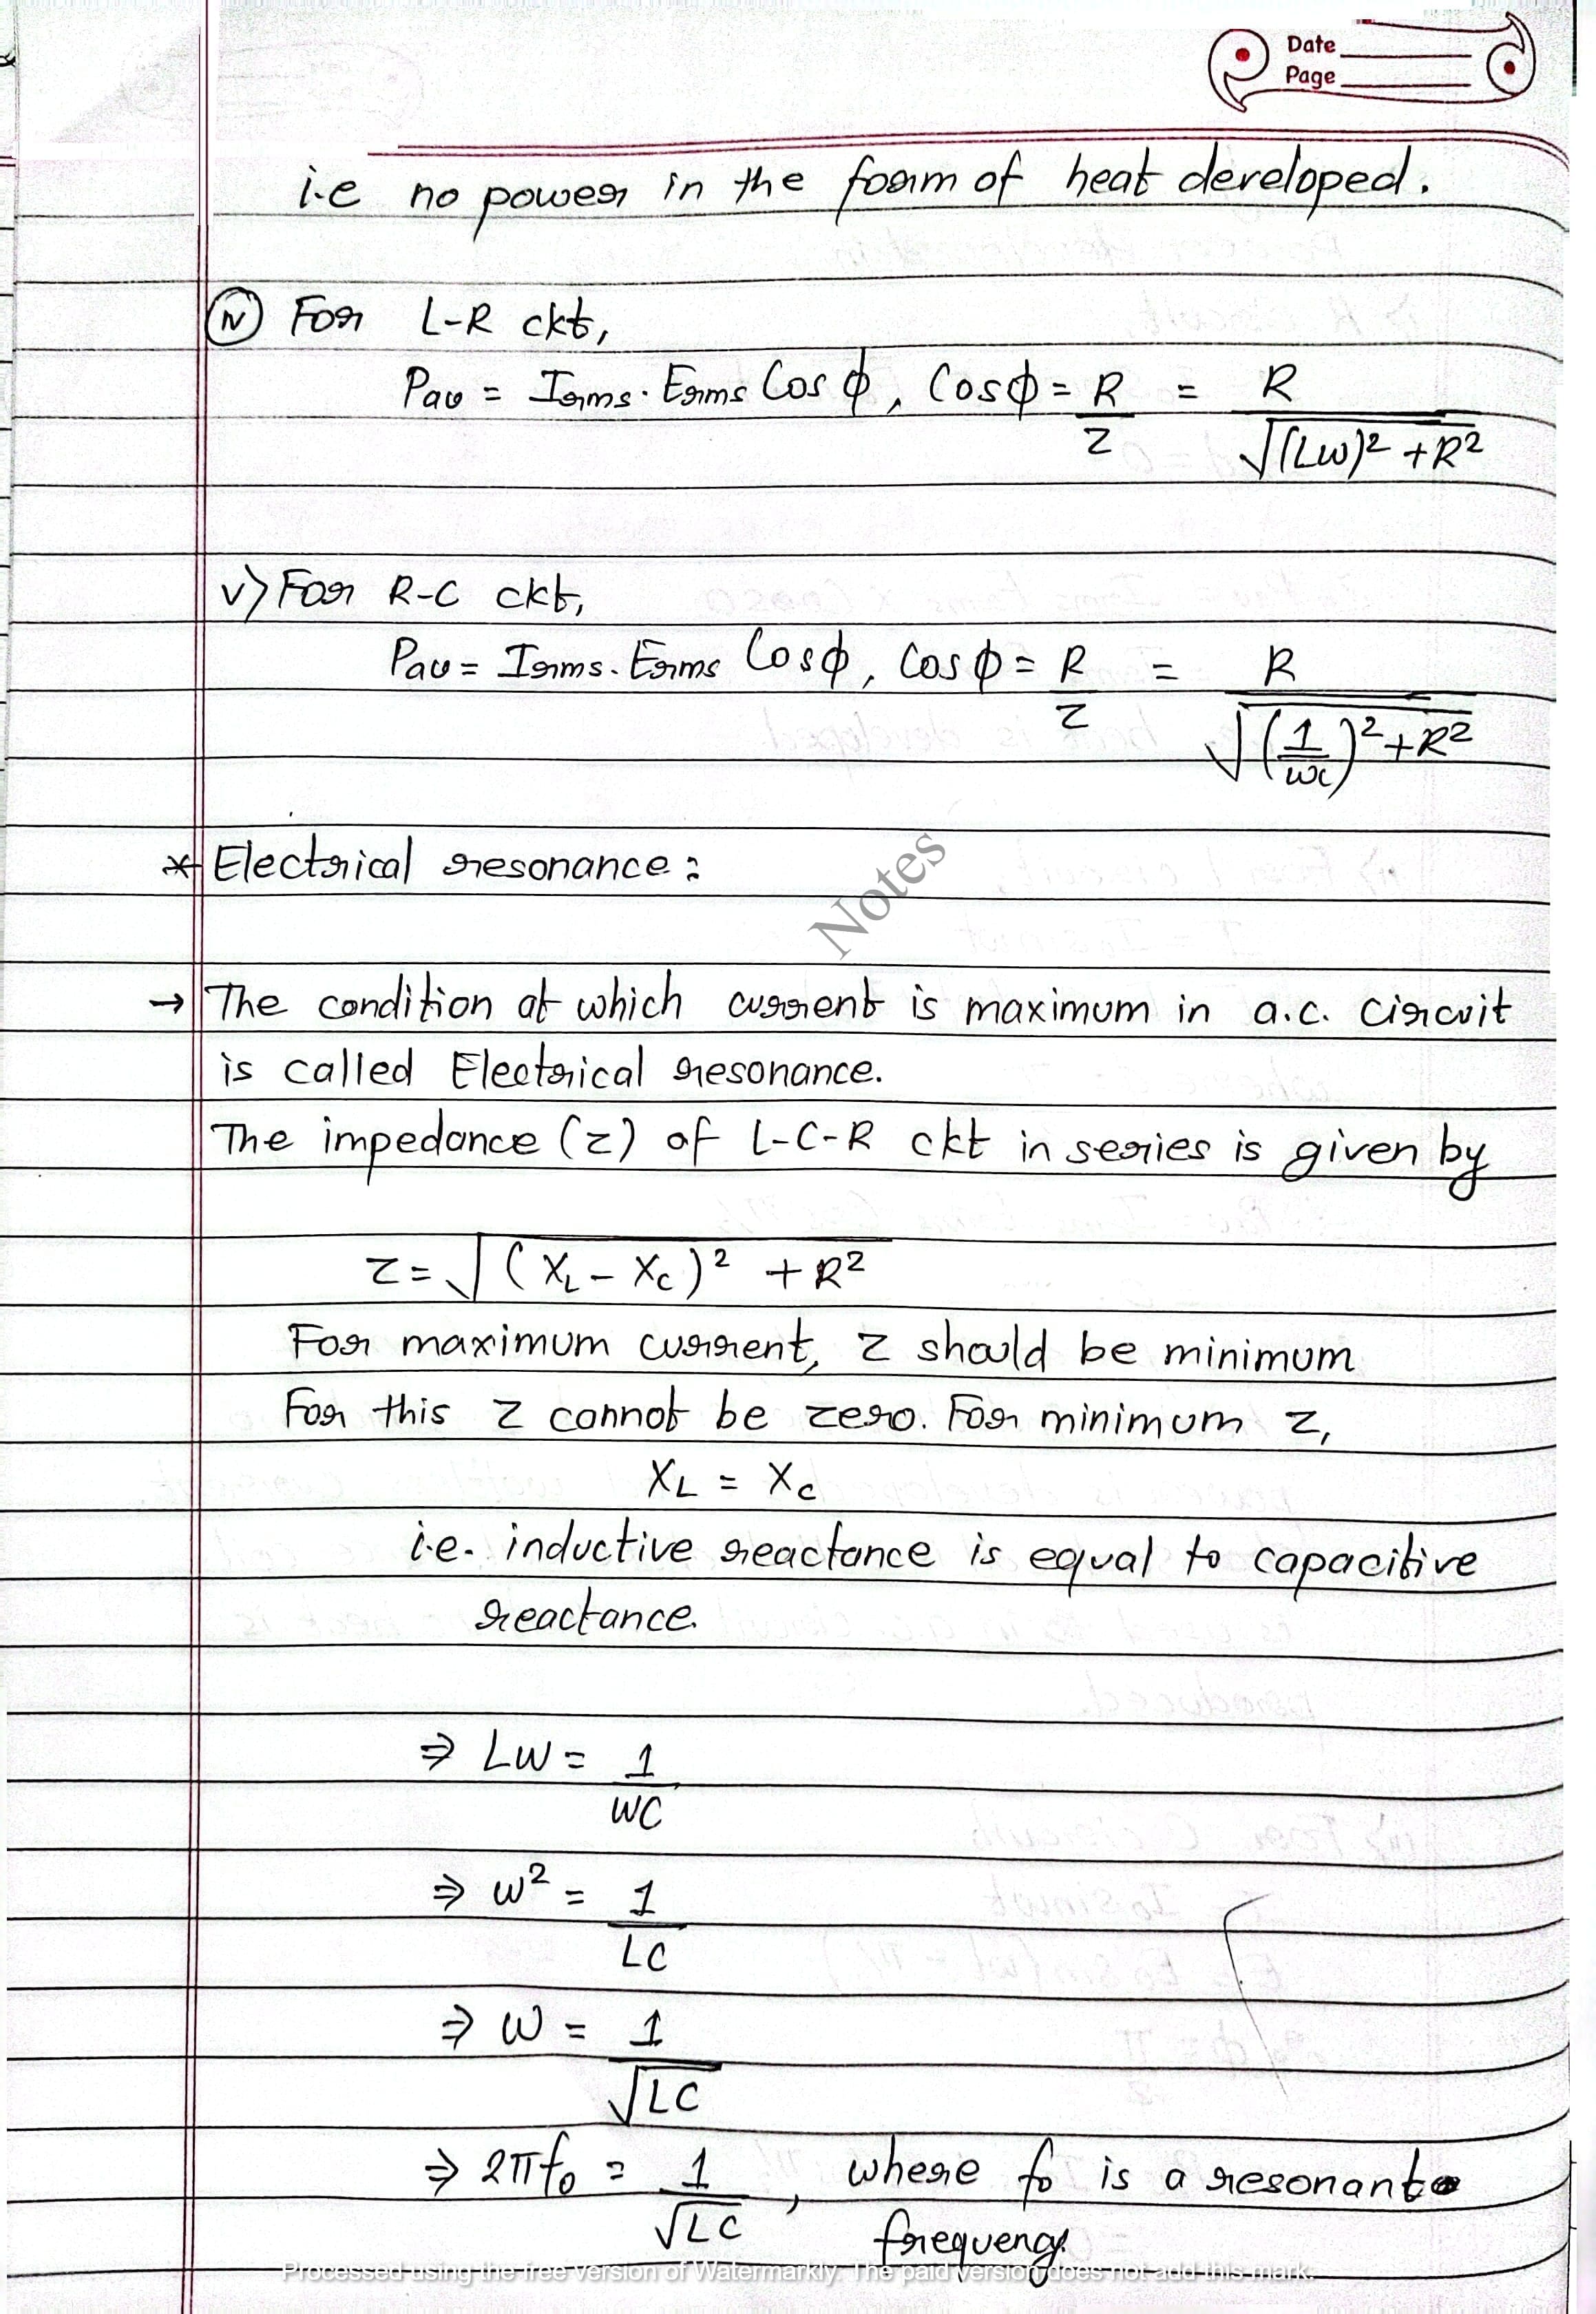 Date
Page
i.e no power in the form of heat developed.
(iv) For L-R ckt,
Pav = Irms. Erms Cos ϕ, Cosϕ = R/Z = R/√((Lw)² + R²)
v) For R-C ckt,
Pav = Irms. Erms Cosϕ, Cosϕ = R/Z = R/√((1/wc)² + R²)
* Electrical resonance:
Notes
→ The condition at which current is maximum in a.c. circuit
is called Electrical resonance.
The impedance (z) of L-C-R ckt in series is given by
z = √((XL - Xc)² + R²)
For maximum current, z should be minimum
For this z cannot be zero. For minimum z,
XL = Xc
i.e. inductive reactance is equal to capacitive
reactance.
⇒ Lw = 1/wc
⇒ w² = 1/LC
⇒ w = 1/√LC
⇒ 2πf₀ = 1/√LC, where f₀ is a resonant
frequency.
Processed using the free version of Watermarkly. The paid version does not add this mark.